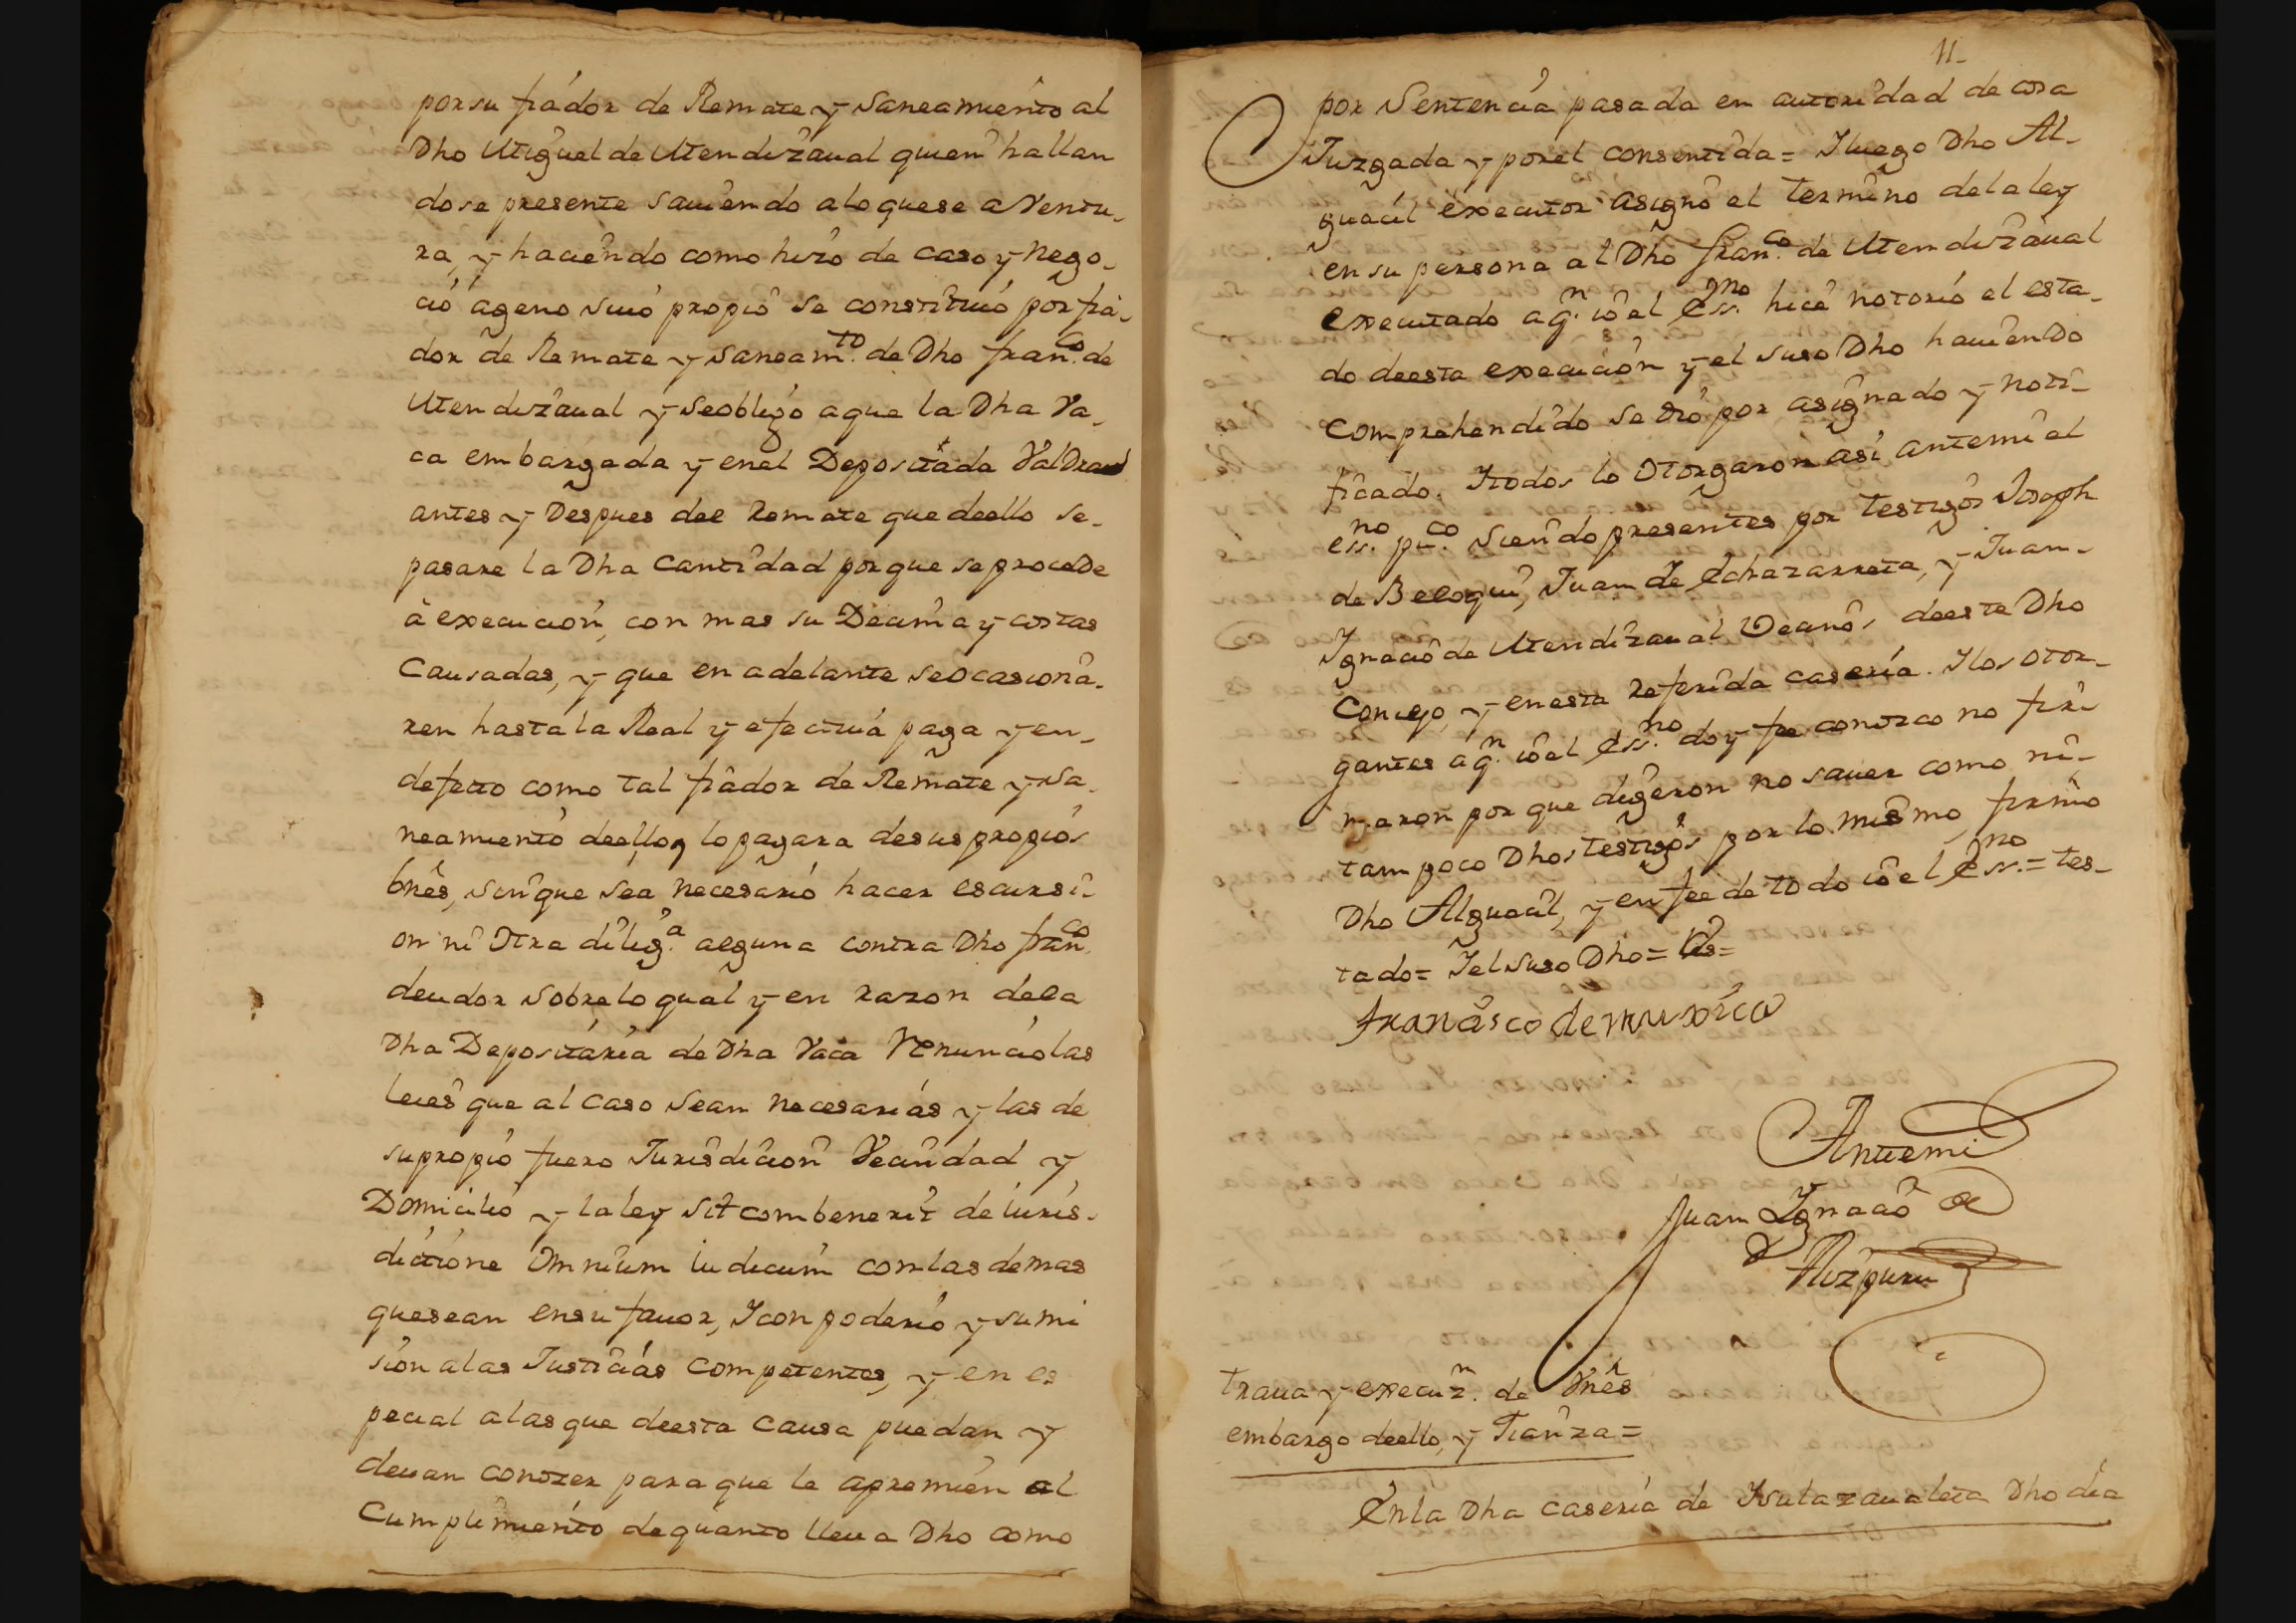 por su fiador de Remate y Saneamiento al
Dho Miguel de Mendizaual quien hallan
dose presente Sauiendo alo quese aventu-
ra, y haciendo como hizo de caso y nego-
cio ageno suio propio se constituió por fia-
dor de Remate y saneam.to de Dho fran.co de
Mendizaual y seobligó a que la Dha Va-
ca embargada y enel Depositada Valdran
antes y Despues del Remate que deello se-
pasare la Dha Cantidad porque se procede
à execucion, con mas su Decima y costas
Causadas, y que en adelante seocasiona-
ren hasta la Real y efectiua paga y en-
defecto como tal fiador de Remate y Sa-
neamiento deello, lo pagara desus propios
bnês, sin que sea necesario hacer escursi-
on ni otra dilig.a alguna contra Dho fran.co
deudor sobrelo qual y en razon dela
Dha Depositaria de Dha Vaca Renunció las
leies que al caso sean necesarias y las de
supropio fuero Jurisdicion Vecindad y
Domicilio y la ley sit combenerit de iuris-
dictione omnium iudicum conlas demas
quesean ensu fauor, Y con poderio y sumi
sion alas Justicias competentes, y en es
pecial alas que deesta Causa puedan y
deuan conozer para que le apremien al
Cumplimiento dequanto lleua Dho como
11-
por Sentencia pasada en autoridad de cosa
Juzgada y porel consentida= Yluego Dho Al-
guacil executor asignó el termino dela ley
en su persona al Dho fran.co de Mendizaual
executado aq.n io el Ess.no hice notorio el esta-
do deesta execucion y el suso Dho hauiendo
comprehendido se dió por asignado y noti-
ficado. Ytodos lo otorgaron así antemi el
ess.no pu.co siendo presentes por testigos Joseph
de Beloqui, Juan de Echazarreta, y Juan-
Ygnacio de Mendizaual Vecinos deeste Dho
Concejo, y enesta referida caseria. Ylos otor-
gantes aq.n io el Ess.no doy fee conozco no fir-
maron por que digeron no sauer como ni-
tampoco Dhos testigos por lo mismo, firmó
Dho Alguacil, y en fee de todo io el Ess.no= tes-
tado= Yel suso Dho=
franCisco de muxica
Antemi
Juan Ygnacio de
Aizpuru
traua y execuz.n de Vnês
embargo deello, y Fianza=
Enla Dha caseria de Ysulazaualeta Dho dia